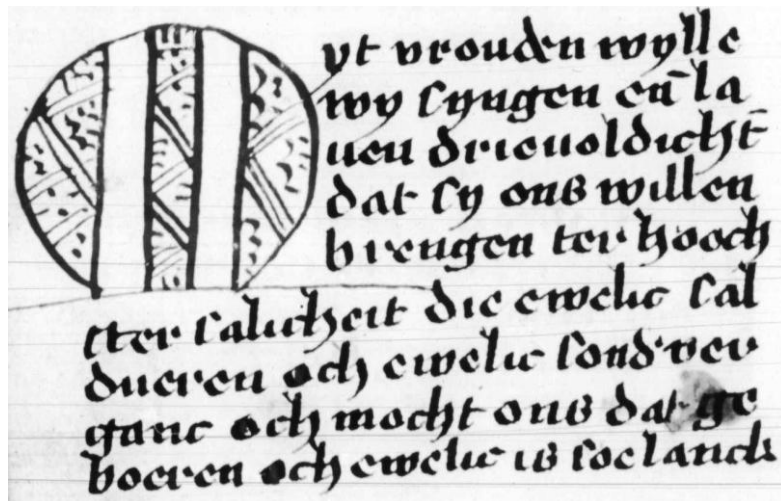 Uyt vrouden wylle
wy syngen en̄ la
uen drieuoldicht̄
dat sy ons willen
brengen ter hooch
ster salicheit die ewelic sal
dueren och ewelic sonder ver
ganc och mocht ons dat ge
boeren och ewelic is soe lanck